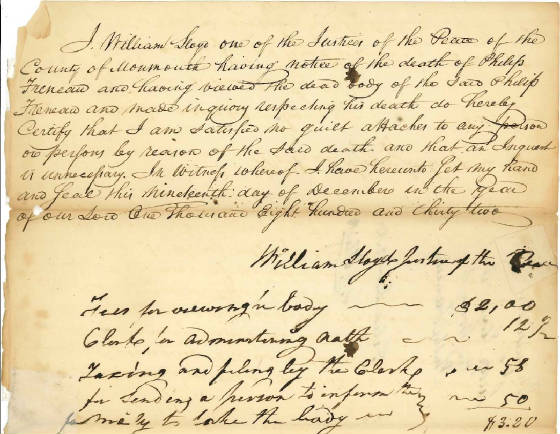 I. William Lloyd one of the Justices of the Peace of the
County of Monmouth having notice of the death of Philip
Freneau and having viewed the dead body of the Said Philip
Freneau and made inquiry respecting his death do hereby
Certify that I am Satisfied no guilt attaches to any person
or persons by reason of the Said death and that an Inquest
is unnecessary. In Witness whereof I have hereunto Set my hand
and Seal this nineteenth day of December in the year
of our Lord One Thousand Eight hundred and thirty two
William Lloyd Justice of the Peace
Fees for viewing body $2,00
Clerk, for administering oath 12½
Taxing and filing by the Clerk 58
for Sending a person to inform the 50
to take the body $3.20